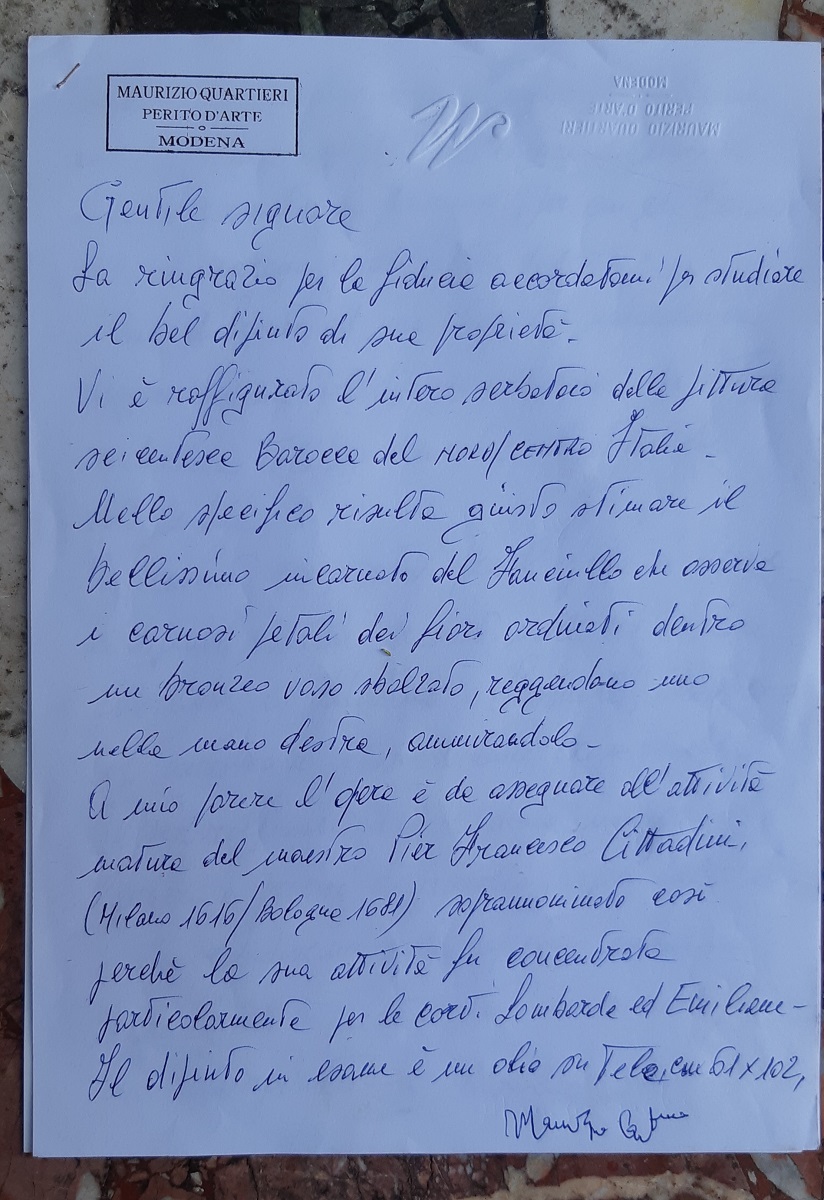 MAURIZIO QUARTIERI
PERITO D'ARTE
MODENA
MAURIZIO QUARTIERI
PERITO D'ARTE
MODENA
Gentile signore
La ringrazio per la fiducia accordatami per studiare
il bel dipinto di sua proprietà.
Vi è raffigurato l'intero serbatoio della pittura
seicentesca Barocca del NORD/CENTRO Italia.
Nello specifico risulta giusto stimare il
bellissimo incarnato del Fanciullo che osserva
i carnosi petali dei fiori ordinati dentro
un bronzeo vaso sbalzato, reggendone uno
nella mano destra, ammirandolo.
A mio parere l'opera è da assegnare all'attività
matura del maestro Pier Francesco Cittadini,
(Milano 1616/Bologna 1681) soprannominato così
perchè la sua attività fu concentrata
particolarmente per le corti Lombarde ed Emiliane-
Il dipinto in esame è un olio su Tela, cm 61x102,